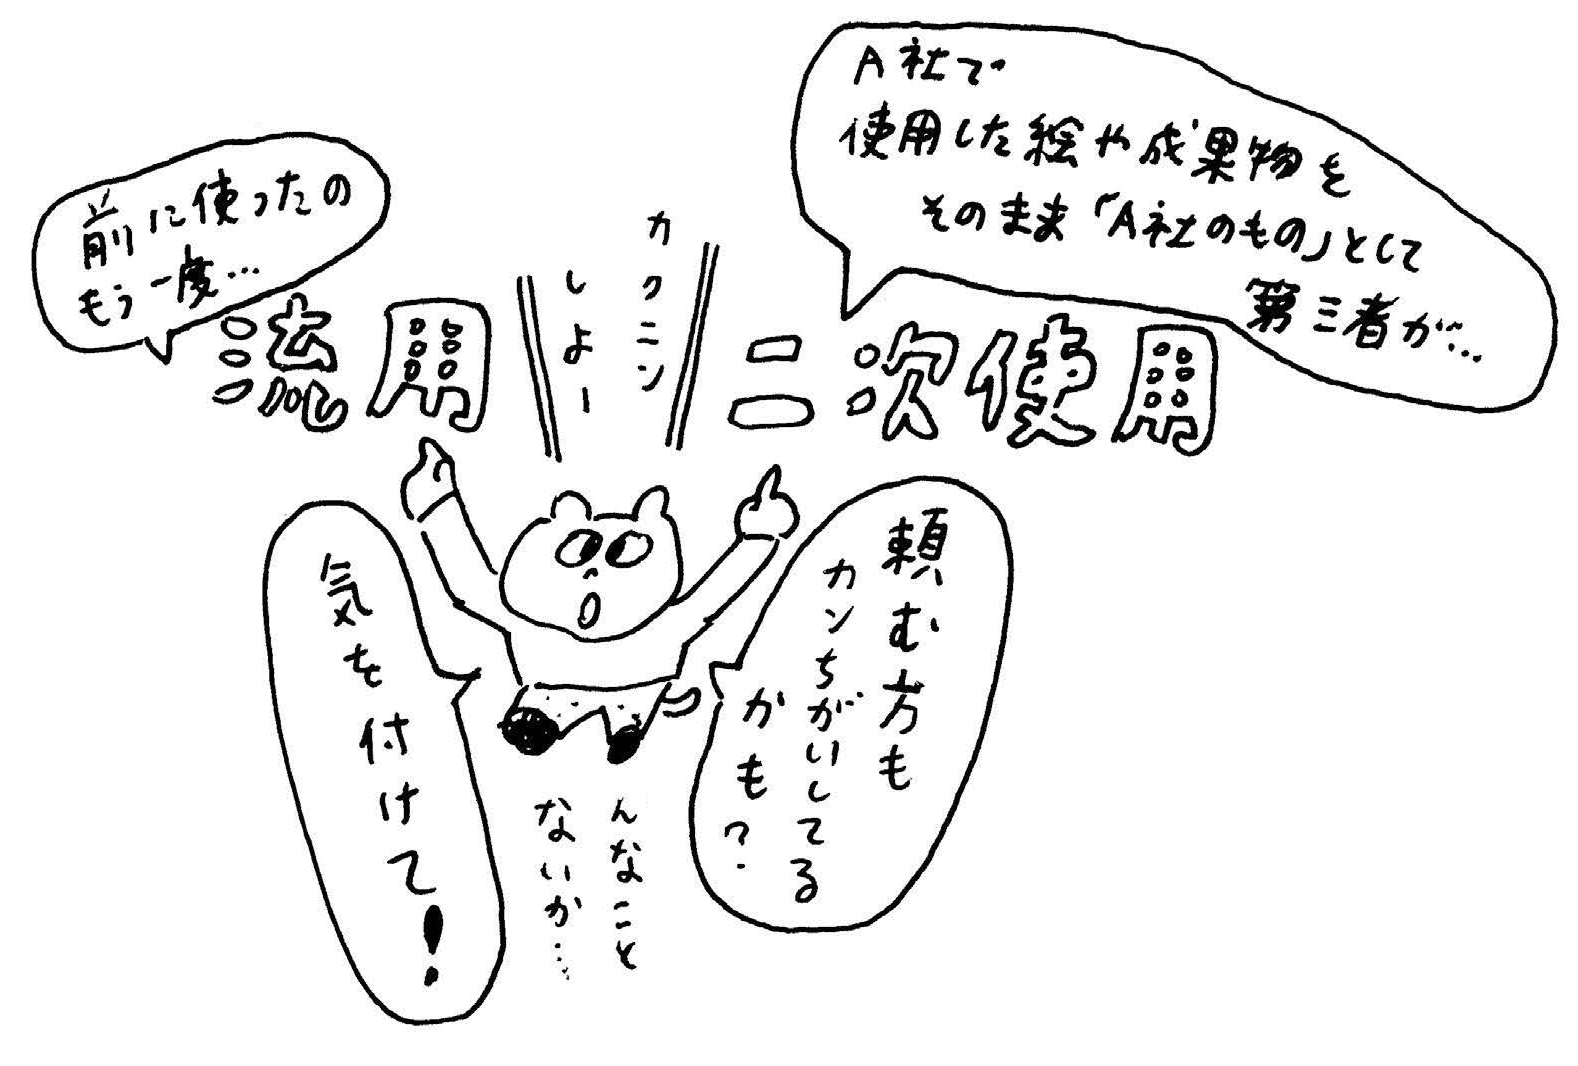 前に使ったの
もう一度…
流用
カクニン
しよー
A社で
使用した絵や成果物を
そのまま「A社のもの」として
第三者が…
二次使用
頼む方も
カンちがいしてる
かも?
気を付けて!
んなこと
ないか…